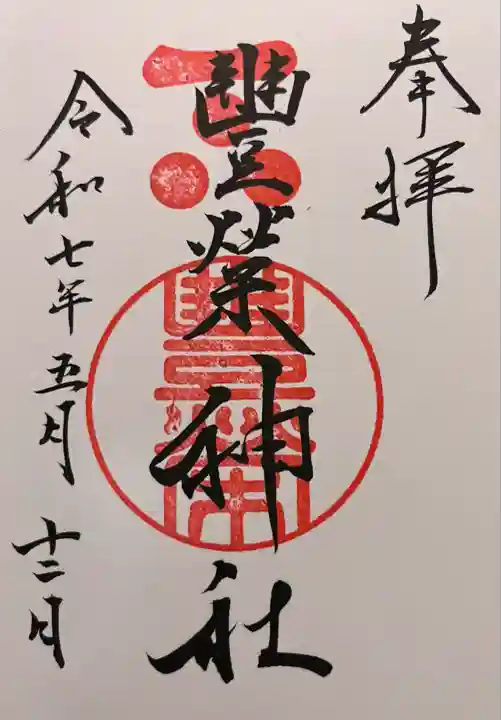 奉拝
豐榮神社
令和七年五月十二日